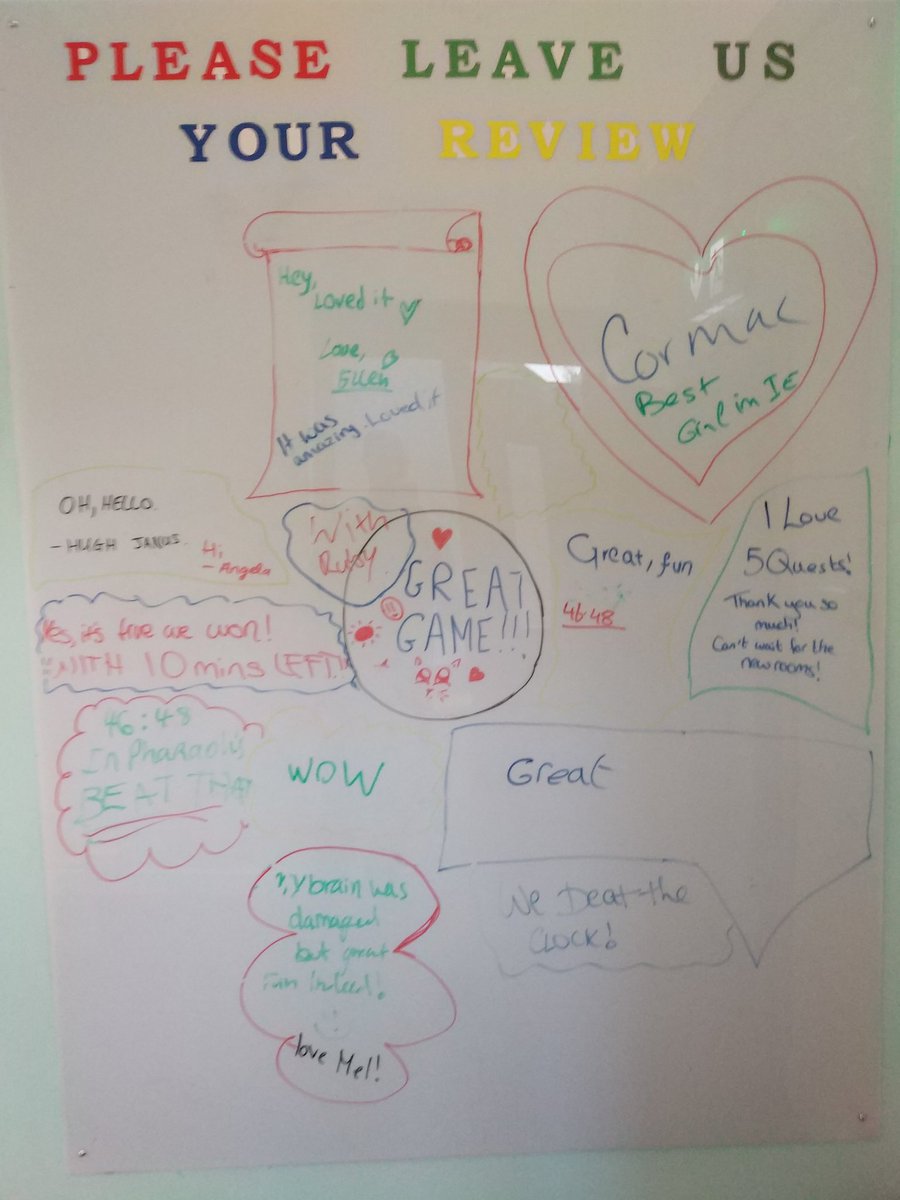 PLEASE LEAVE US
YOUR REVIEW
Hey,
Loved it
Love,
Ellen
It was
amazing. Loved it
Cormac
Best
Girl in IE
OH, HELLO.
- HUGH JANUS.
Hi,
- Angela
With
Ruby
GREAT
GAME!!!
Great, fun
46:48
I Love
5Quests!
Thank you so
much!
Can't wait for the
new rooms!
Yes, it's true we won!
WITH 10 mins LEFT!
46:48
In Pharaoh's
BEAT THAT
WOW
Great
My brain was
damaged
but great
Fun indeed!
love Mel!
We Beat the
CLOCK!